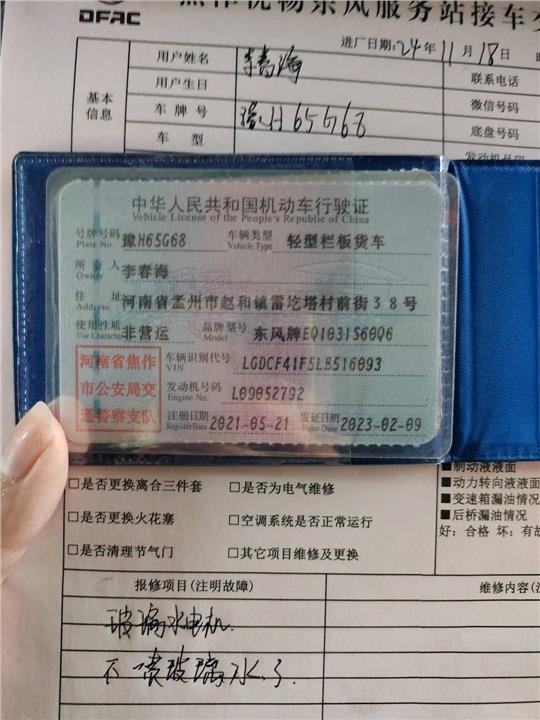 DFAC 焦作优畅东风服务站接车
进厂日期:24年11月18日
用户姓名 李春海 联系电话
用户生日 微信号码
基本信息
车牌号 豫H65G68 底盘号码
车型
中华人民共和国机动车行驶证
Vehicle License of the People's Republic of China
号牌号码 Plate No. 豫H65G68 车辆类型 Vehicle Type 轻型栏板货车
所有人 Owner 李春海
住址 Address 河南省孟州市赵和镇雷圪塔村前街38号
使用性质 Use Character 非营运 品牌型号 Model 东风牌EQ1031S60Q6
河南省焦作
市公安局交
通警察支队
车辆识别代号 VIN LGDCF41F5LB516093
发动机号码 Engine No. L09052792
注册日期 Register Date 2021-05-21 发证日期 Issue Date 2023-02-09
■制动液液面
□是否更换离合三件套 □是否为电气维修 ■动力转向液液面
■变速箱漏油情况
□是否更换火花塞 □空调系统是否正常运行 ■后桥漏油情况
好:合格 坏:有故
□是否清理节气门 □其它项目维修及更换
报修项目(注明故障) 维修内容
玻璃水电机
不喷玻璃水了